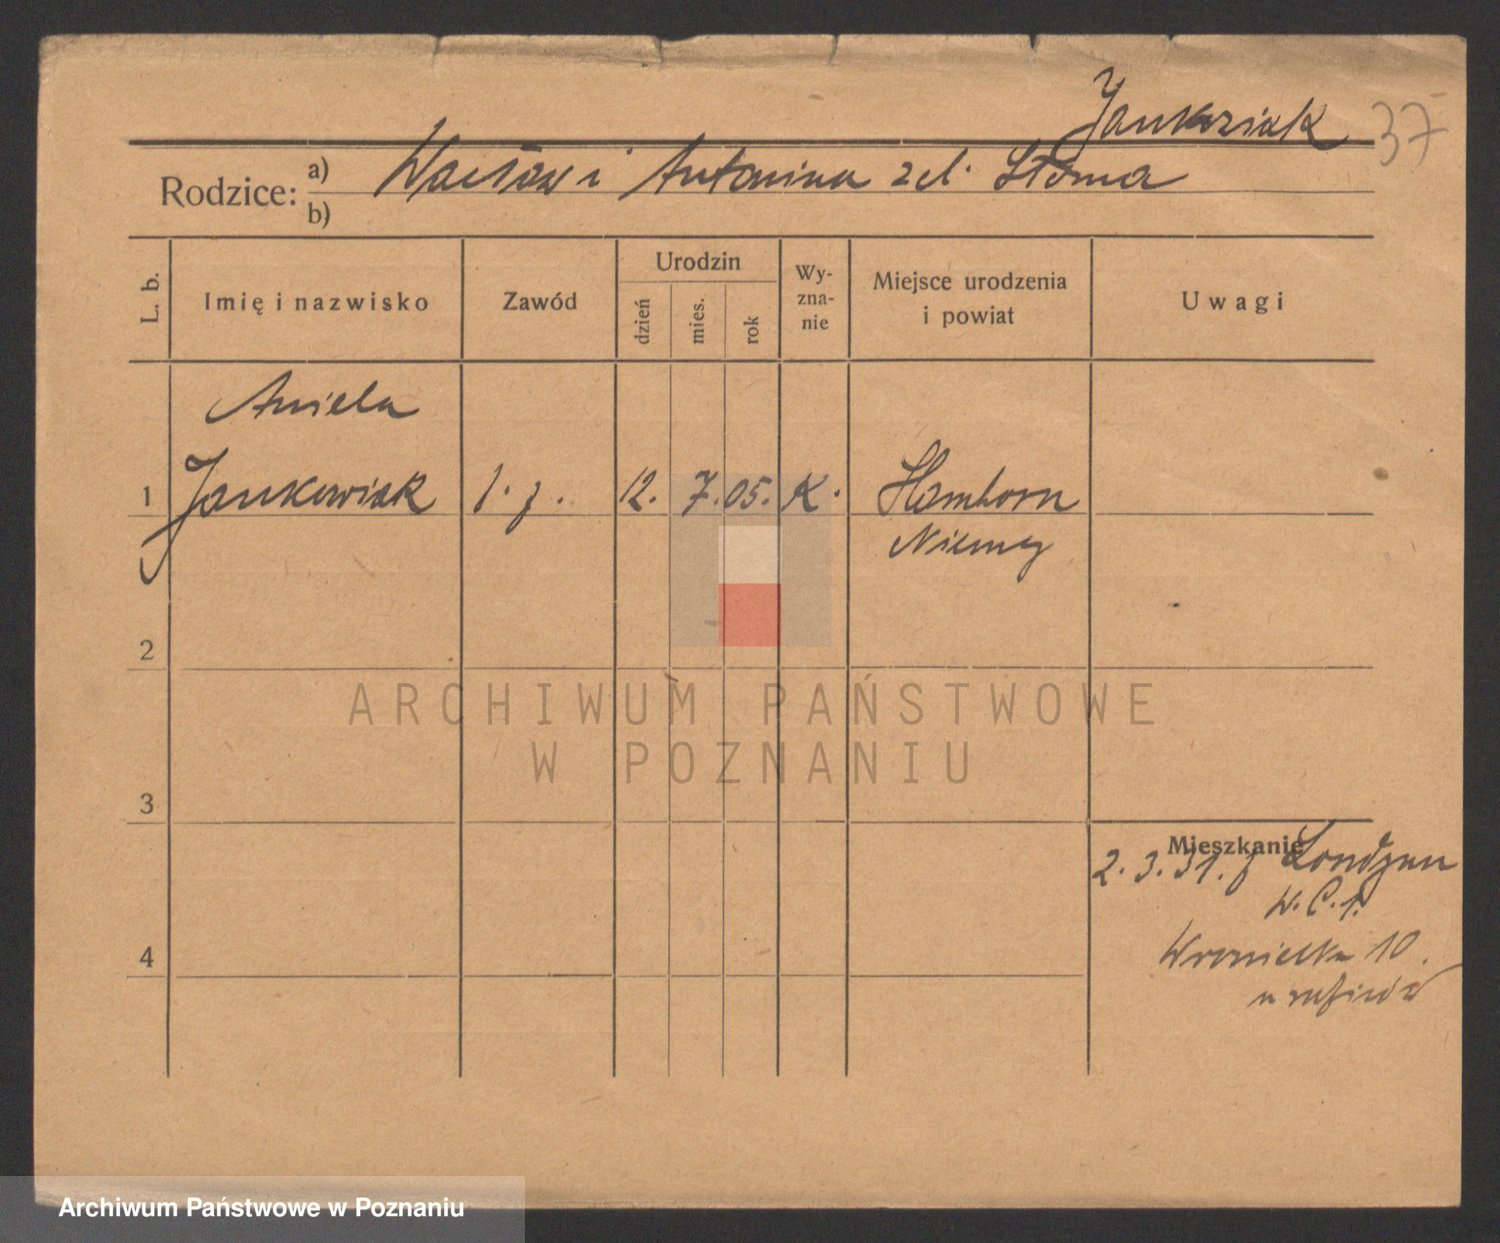 37
Rodzice:
a) Wacław i Antonina z d. Słoma
b)
L. b.
Imię i nazwisko
Zawód
Urodzin
dzień
mies.
rok
Wy-
zna-
nie
Miejsce urodzenia
i powiat
Uwagi
Aniela
1 Jankowiak 12. 7. 05. K. Hamborn
Niemcy
2
3
4
Mieszkanie
2.3.31.
10.
ARCHIWUM PAŃSTWOWE
W POZNANIU
Archiwum Państwowe w Poznaniu